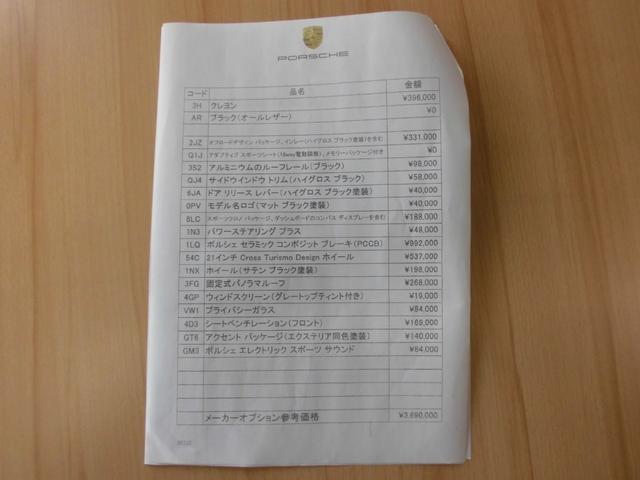 PORSCHE
コード 品名 金額
3H クレヨン ¥396,000
AR ブラック(オールレザー) ¥0
2JZ オフロードデザイン パッケージ、インレー(ハイグロス ブラック塗装)を含む ¥331,000
Q1J アダプティブ スポーツシート(18way電動調整)、メモリーパッケージ付き ¥0
3S2 アルミニウムのルーフレール(ブラック) ¥98,000
QJ4 サイドウインドウ トリム(ハイグロス ブラック) ¥58,000
6JA ドア リリース レバー(ハイグロス ブラック塗装) ¥40,000
0PV モデル名ロゴ(マット ブラック塗装) ¥40,000
8LC スポーツクロノ パッケージ、ダッシュボードのコンパス ディスプレーを含む ¥188,000
1N3 パワーステアリング プラス ¥48,000
1LQ ポルシェ セラミック コンポジット ブレーキ(PCCB) ¥992,000
54C 21インチ Cross Turismo Design ホイール ¥537,000
1NX ホイール(サテン ブラック塗装) ¥198,000
3FG 固定式パノラマルーフ ¥268,000
4GP ウィンドスクリーン(グレートップティント付き) ¥19,000
VW1 プライバシーガラス ¥84,000
4D3 シートベンチレーション(フロント) ¥169,000
GT6 アクセント パッケージ(エクステリア同色塗装) ¥140,000
GM3 ポルシェ エレクトリック スポーツ サウンド ¥84,000
メーカーオプション参考価格 ¥3,690,000